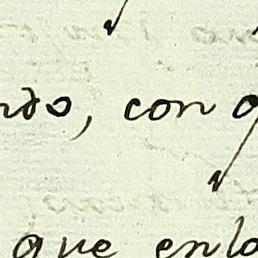 ndo, con
que enlo